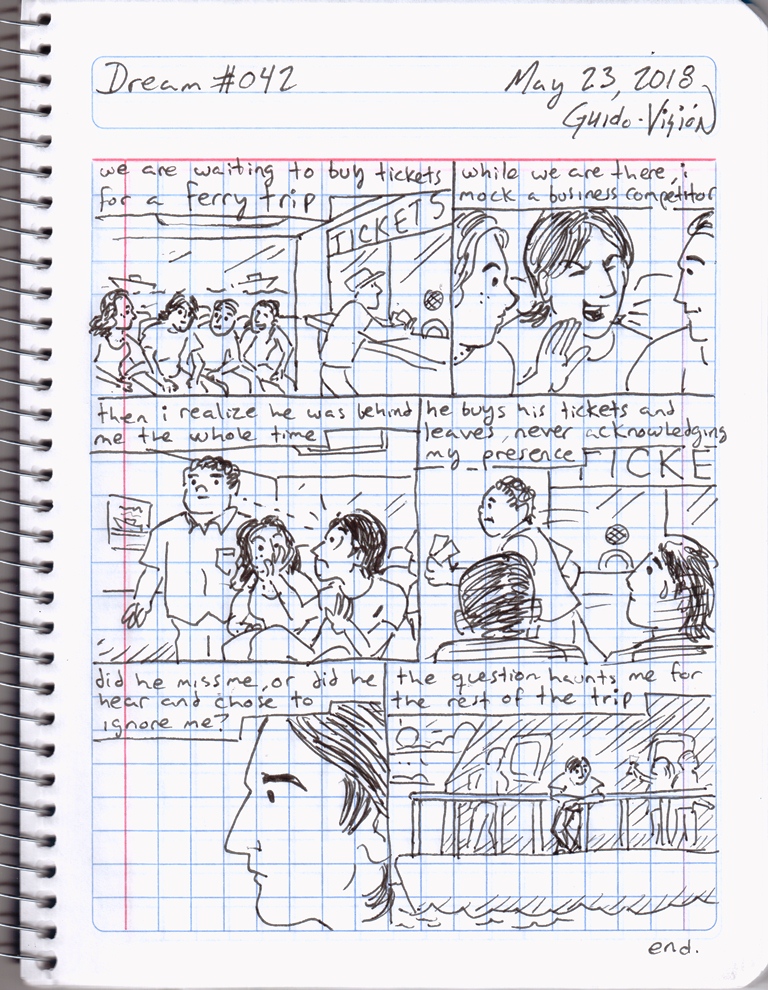 Dream #042
May 23, 2018
Guido-Visión
we are waiting to buy tickets
for a ferry trip
TICKETS
while we are there, i
mock a business competitor
then i realize he was behind
me the whole time
he buys his tickets and
leaves, never acknowledging
my presence
TICKE
did he miss me, or did he
hear and chose to
ignore me?
the question haunts me for
the rest of the trip
end.